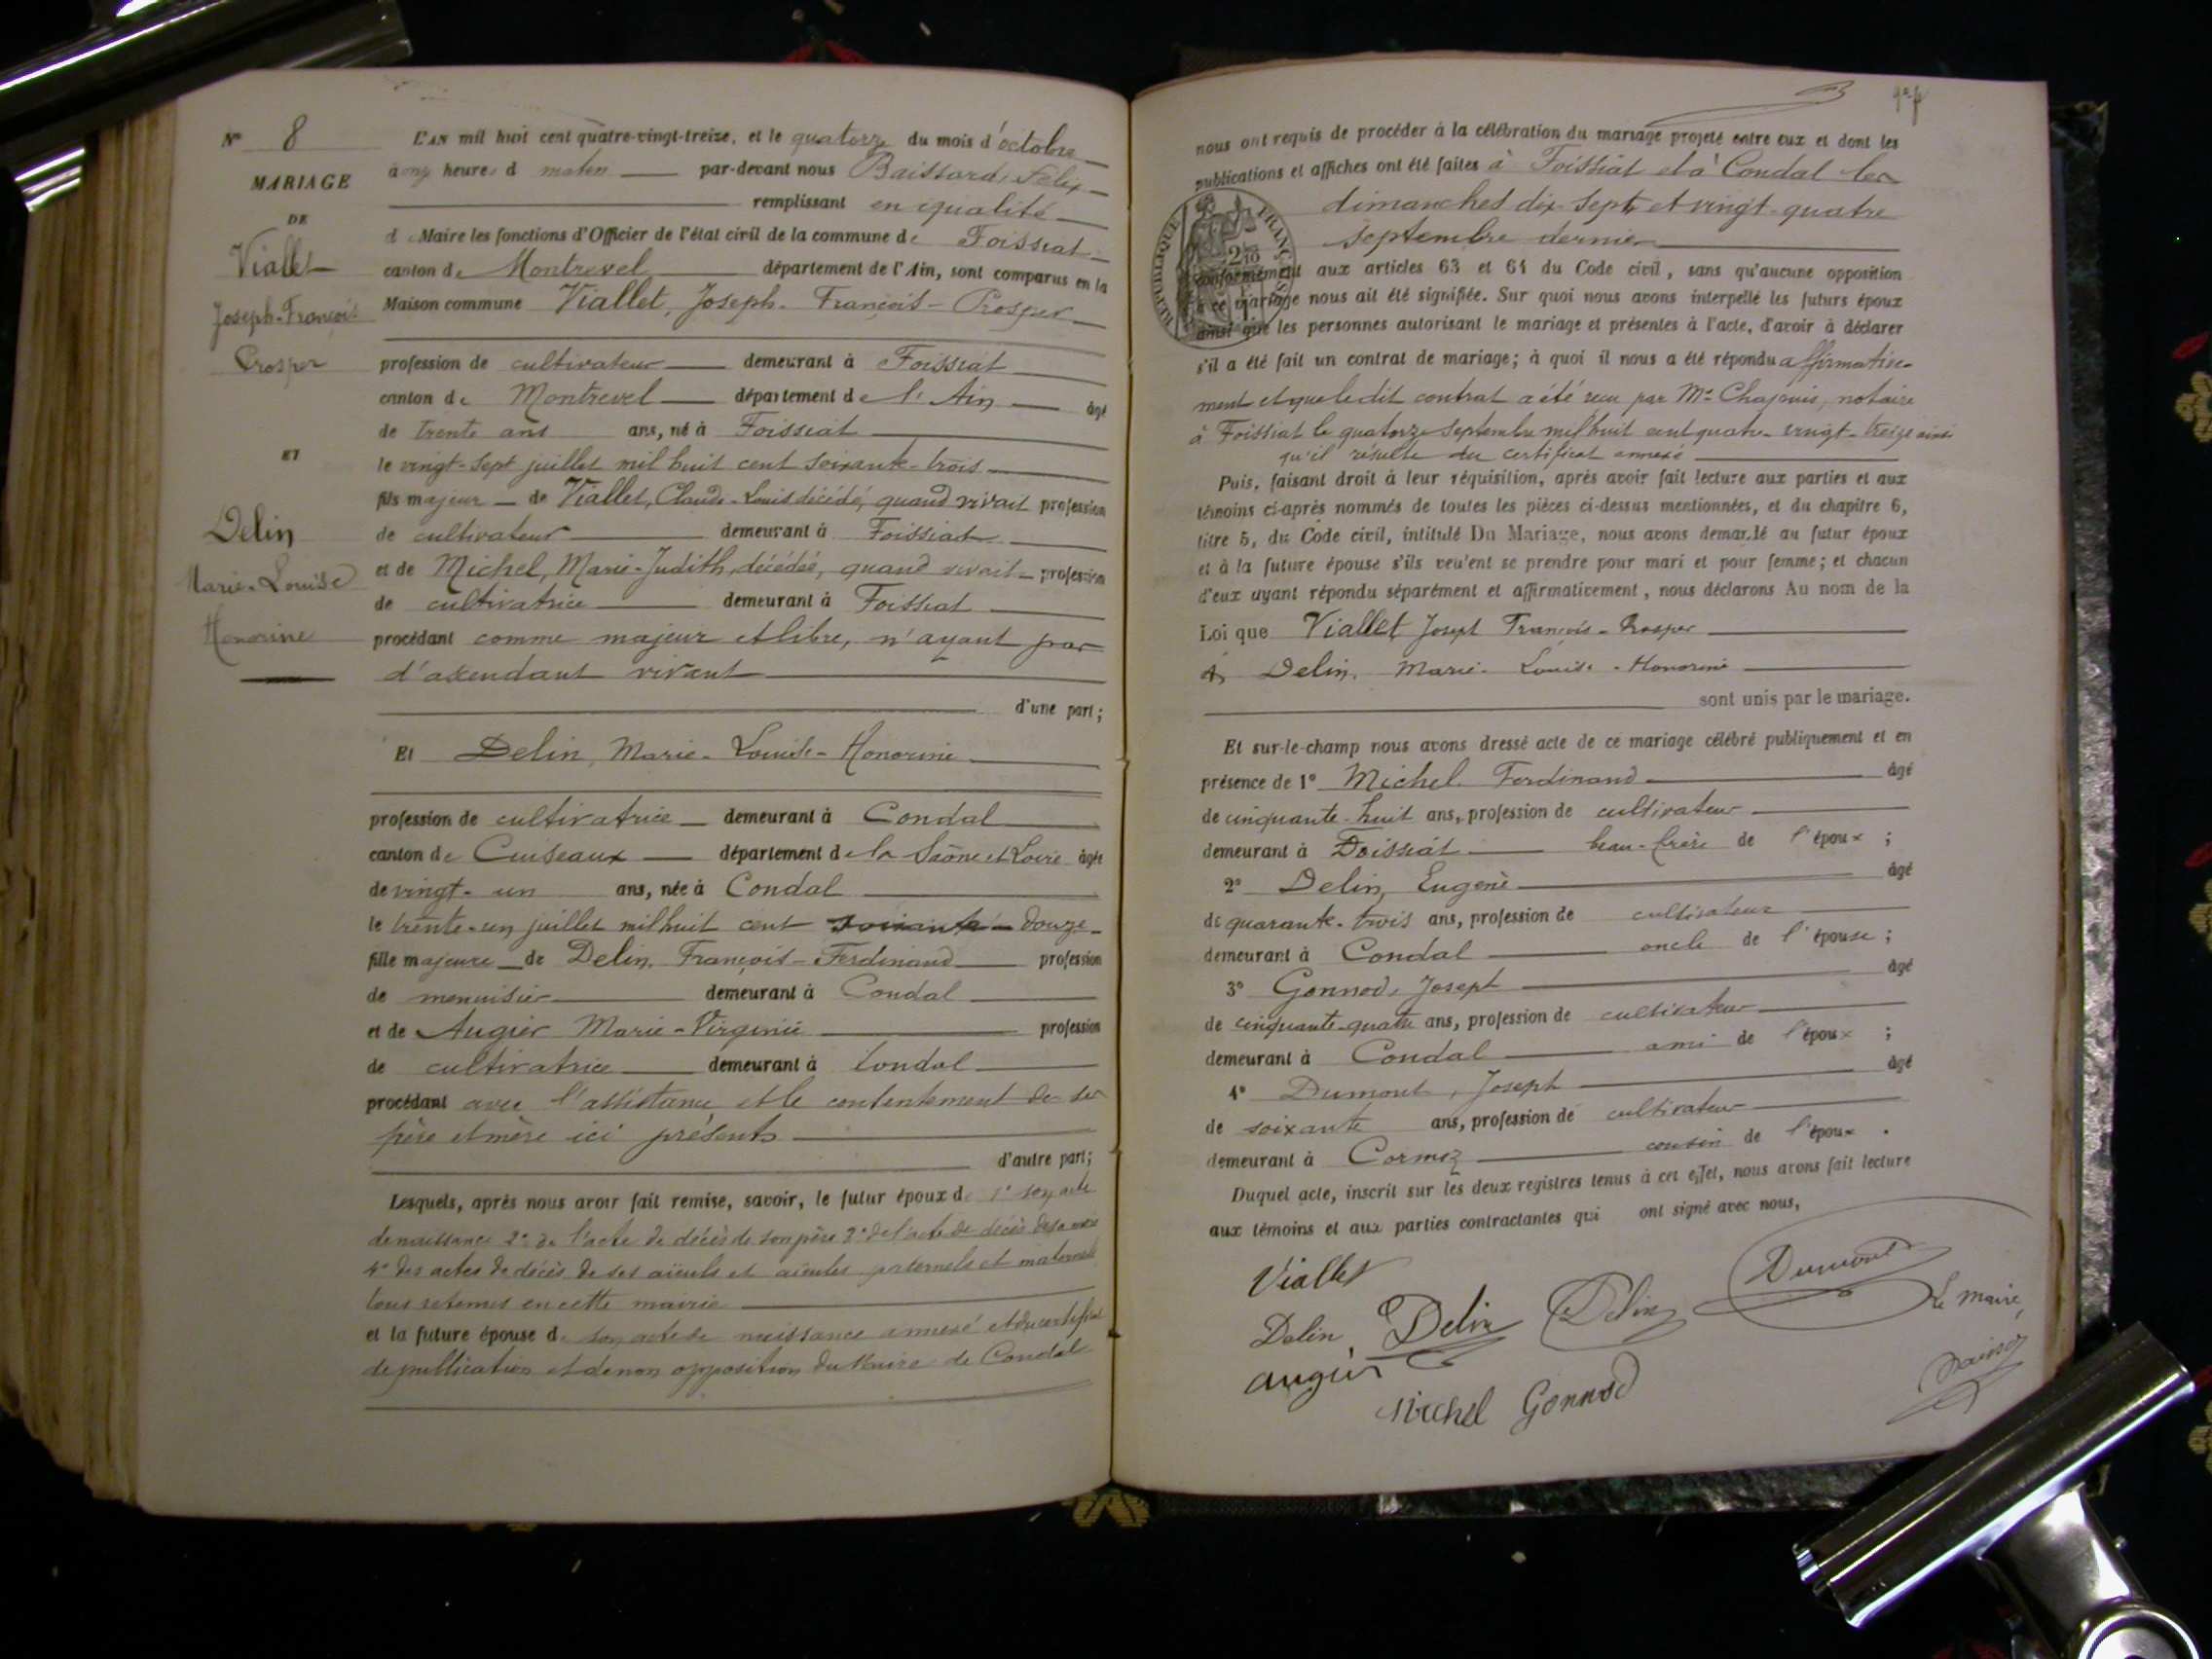 N° 8
MARIAGE
DE
Viallet
Joseph-François
Prosper
ET
Delin
Marie-Louise
Honorine
L'AN mil huit cent quatre-vingt-treize, et le quatorze du mois d'octobre
à onze heures d matin par-devant nous Baissard, Félix
remplissant en qualité
de Maire les fonctions d'Officier de l'état civil de la commune de Foissiat
canton de Montrevel département de l'Ain, sont comparus en la
Maison commune Viallet, Joseph-François-Prosper
profession de cultivateur demeurant à Foissiat
canton de Montrevel département de l'Ain âgé
de trente ans ans, né à Foissiat
le vingt-sept juillet mil huit cent soixante-trois
fils majeur de Viallet, Claude-Louis décédé, quand vivait profession
de cultivateur demeurant à Foissiat
et de Michel, Marie-Judith, décédée, quand vivait profession
de cultivatrice demeurant à Foissiat
procédant comme majeur et libre, n'ayant pas
d'ascendant vivant
d'une part;
Et Delin, Marie-Louise-Honorine
profession de cultivatrice demeurant à Condal
canton de Cuiseaux département de la Saône et Loire âgée
de vingt-un ans, née à Condal
le trente-un juillet mil huit cent soixante-douze
fille majeure de Delin, François-Ferdinand profession
de menuisier demeurant à Condal
et de Augier Marie-Virginie profession
de cultivatrice demeurant à Condal
procédant avec l'assistance et le consentement de ses
père et mère ici présents
d'autre part;
Lesquels, après nous avoir fait remise, savoir, le futur époux de 1° son acte
de naissance 2° de l'acte de décès de son père 3° de l'acte de décès de sa mère
4° des actes de décès de ses aïeuls et aïeules paternels et maternels
tous retenus en cette mairie
et la future épouse de son acte de naissance annexé et du certificat
de publication et de non opposition du Maire de Condal
nous ont requis de procéder à la célébration du mariage projeté entre eux et dont les
publications et affiches ont été faites à Foissiat et à Condal les
dimanches dix-sept et vingt-quatre
septembre dernier
REPUBLIQUE FRANÇAISE
conformément aux articles 63 et 64 du Code civil, sans qu'aucune opposition
à ce mariage nous ait été signifiée. Sur quoi nous avons interpellé les futurs époux
ainsi que les personnes autorisant le mariage et présentes à l'acte, d'avoir à déclarer
s'il a été fait un contrat de mariage; à quoi il nous a été répondu affirmative-
ment et que le dit contrat a été reçu par Me Chapuis, notaire
à Foissiat le quatorze septembre mil huit cent quatre-vingt-treize ainsi
qu'il résulte du certificat annexé
Puis, faisant droit à leur réquisition, après avoir fait lecture aux parties et aux
témoins ci-après nommés de toutes les pièces ci-dessus mentionnées, et du chapitre 6,
titre 5, du Code civil, intitulé Du Mariage, nous avons demandé au futur époux
et à la future épouse s'ils veulent se prendre pour mari et pour femme; et chacun
d'eux ayant répondu séparément et affirmativement, nous déclarons Au nom de la
Loi que Viallet Joseph François-Prosper
et Delin, Marie-Louise-Honorine
sont unis par le mariage.
Et sur-le-champ nous avons dressé acte de ce mariage célébré publiquement et en
présence de 1° Michel Ferdinand âgé
de cinquante-huit ans, profession de cultivateur
demeurant à Foissiat beau-frère de l'époux ;
2° Delin, Eugène âgé
de quarante-trois ans, profession de cultivateur
demeurant à Condal oncle de l'épouse ;
3° Gonnod, Joseph âgé
de cinquante-quatre ans, profession de cultivateur
demeurant à Condal ami de l'époux ;
4° Dumont, Joseph âgé
de soixante ans, profession de cultivateur
demeurant à Cormoz cousin de l'époux .
Duquel acte, inscrit sur les deux registres tenus à cet effet, nous avons fait lecture
aux témoins et aux parties contractantes qui ont signé avec nous,
Viallet
Dumont
Delin Delin Delin
Le Maire,
augier
Michel Gonnod